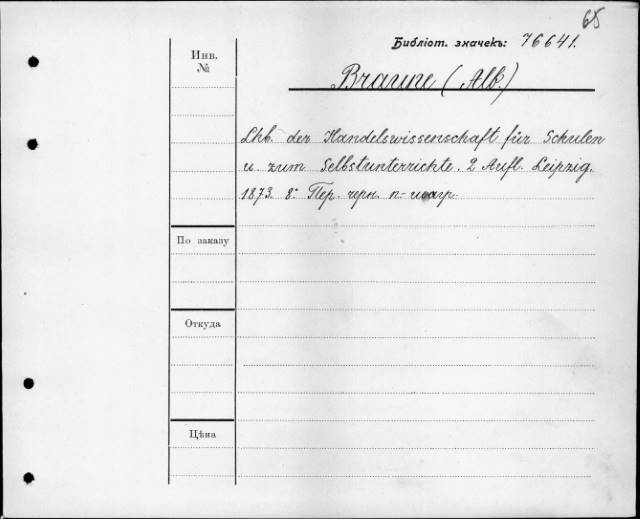 65
Библіот. значекъ: 76641.
Инв. №
Braune (Alb.)
Lhb. der Handelswissenschaft für Schulen
u. zum Selbstunterrichte. 2 Aufl. Leipzig.
1873. 8° Пер. черн. п.-шагр.
По заказу
Откуда
Цѣна